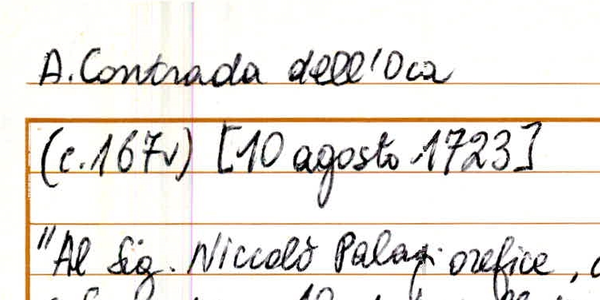 A. Contrada dell'Oca
(c. 167v) [10 agosto 1723]
"Al Sig. Niccolò Palagi orefice,